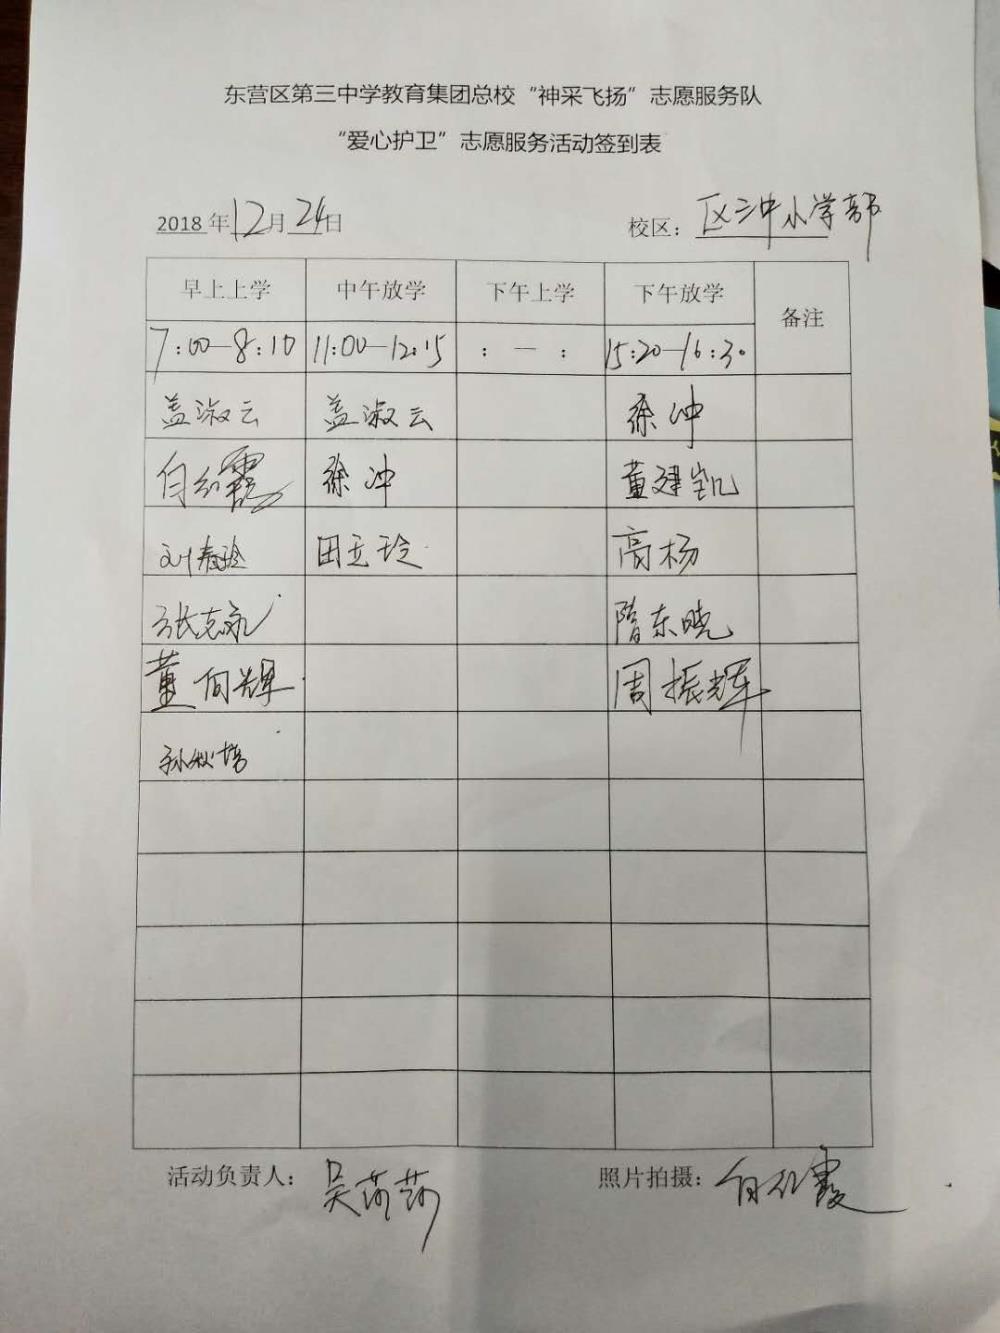 东营区第三中学教育集团总校“神采飞扬”志愿服务队
“爱心护卫”志愿服务活动签到表
2018年12月24日 校区：区三中小学部
早上上学 中午放学 下午上学 下午放学 备注
7:00—8:10 11:00—12:15 : — : 15:20—16:30
盖淑云 盖淑云 徐冲
白红霞 徐冲 董建凯
刘春玲 田玉玲 高杨
张志永 隋东晓
董向辉 周振辉
孙秋培
活动负责人：吴莎莎 照片拍摄：白红霞